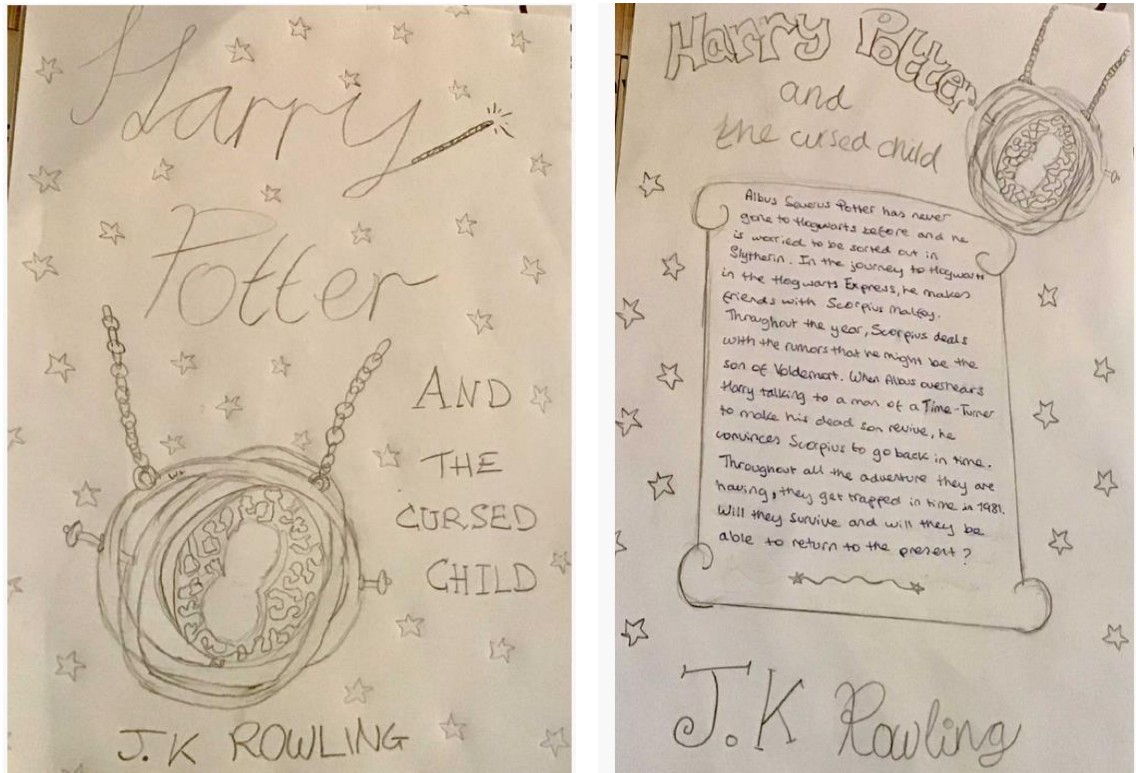 Harry
Potter
AND
THE
CURSED
CHILD
J.K ROWLING
Harry Potter
and
the cursed child
Albus Severus Potter has never
gone to Hogwarts before and he
is worried to be sorted out in
Slytherin. In the journey to Hogwarts
in the Hogwarts Express, he makes
friends with Scorpius Malfoy.
Throughout the year, Scorpius deals
with the rumors that he might be the
son of Voldemort. When Albus overhears
Harry talking to a man of a Time-Turner
to make his dead son revive, he
convinces Scorpius to go back in time.
Throughout all the adventure they are
having, they get trapped in time in 1981.
Will they survive and will they be
able to return to the present?
J.K Rowling